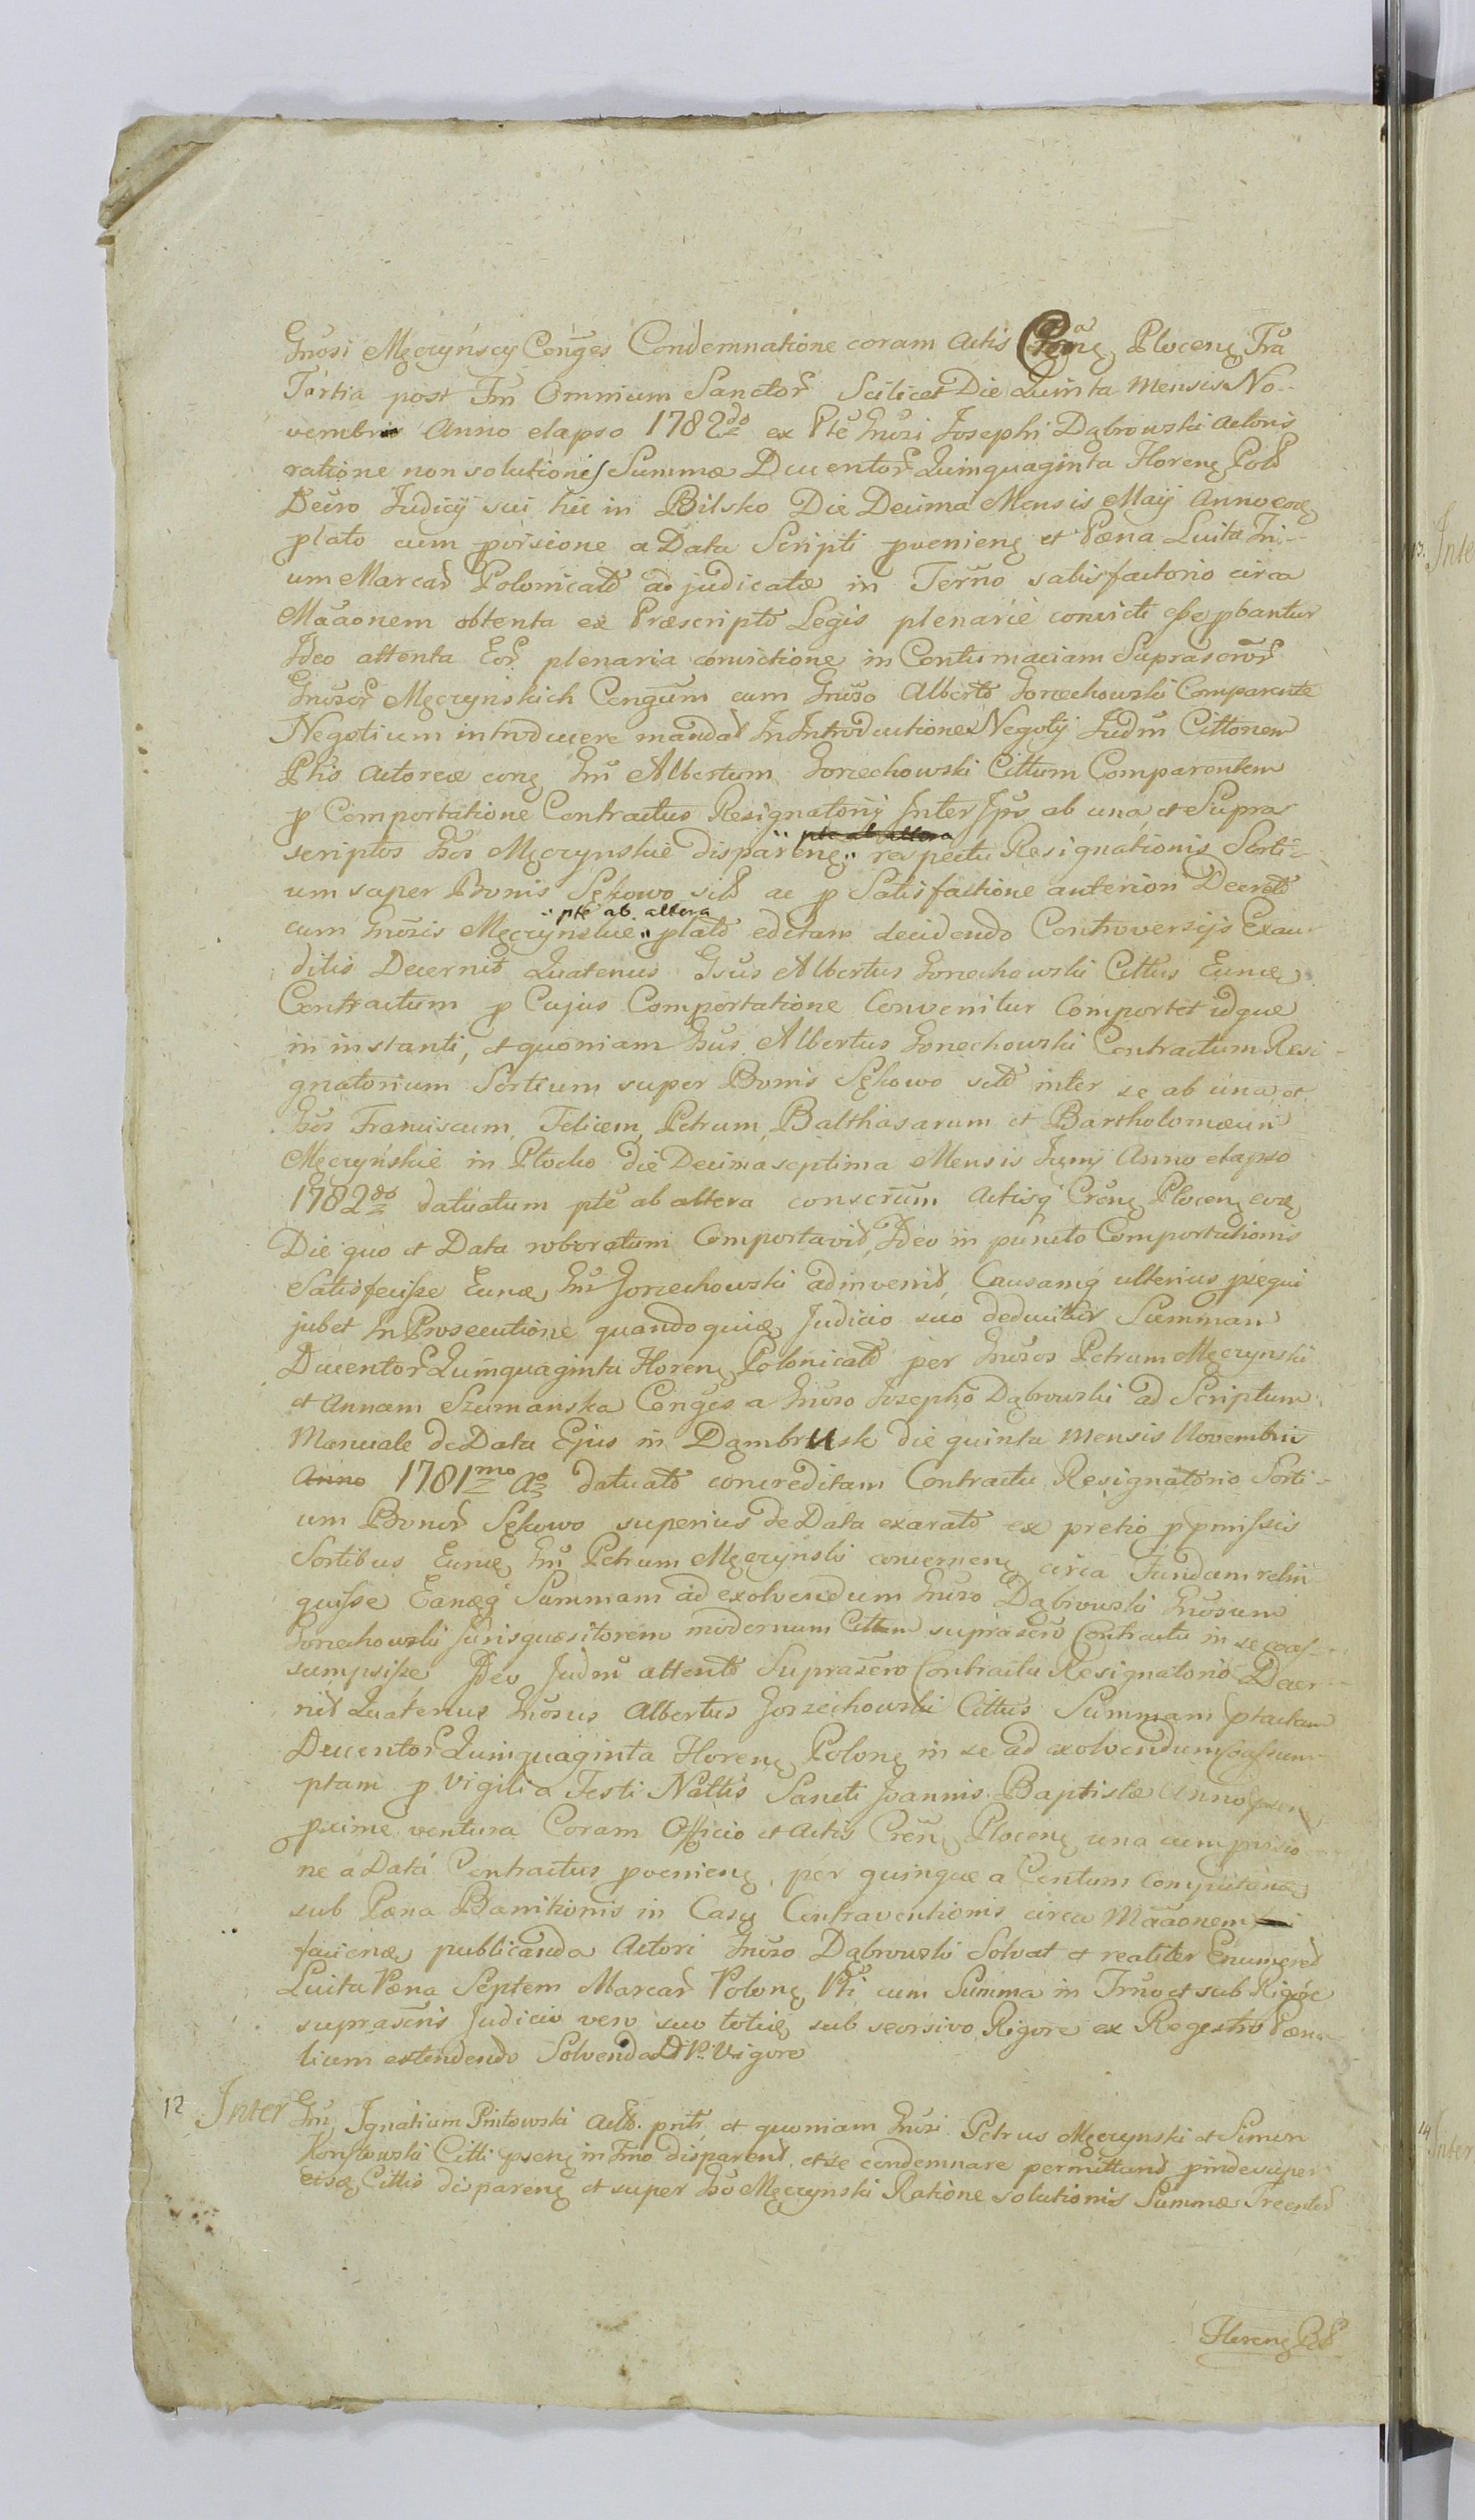 Gnosi Męczyńscy Conges Condemnatione coram Actis Crenę Plocenę Fra
Tertia post Fm Omnium Sanctor Scilicet Die Quinta Mensis No-
vembris Anno elapso 1782do ex Pte Gnosi Josephi Dąbrowski Actoris
ratione non solutionis Summæ Ducentor Quinquaginta Florenę Pol
Decro Judicÿ sui hic in Bilsko Die Decima Mensis Maÿ Anno eodę
plato cum provisione a Data Scripti pvenienę et Pæna Luita Tri-
um Marcar Polonicald adjudicatæ in Termo satisfactorio circa
Maaonem obtenta ex Præscripto Legis plenarie convicti esse pbantur
Ideo attenta Eor plenaria convictione in Contumaciam Suprascror
Gnosor Męczynskich Congum cum Gnoso Alberto Gorzechowski Comparente
Negotium introducere mandat In Introductione Negotÿ Judm Cittonem
Ptis Actoreæ conę Gm Albertum Gorzechowski Cittum Comparentem
p Comportatione Contractus Resignatorÿ Inter Ips ab una et Supra
scriptos Gsos Męczynskie disparenę " respectu Resignationis Sorti-
um super Bonis Sękowo sitt ac p Satisfactione anteriori Decreto
" pte ab altera
cum Gnosis Męczynskie " plato editam decidendo Controversÿs Exau-
ditis Decernit Quatenus Gsus Albertus Gorzechowski Cittus Eunę
Contractum p Cujus Comportatione Convenitur Comportet idque
in instanti, et quoniam Gsus Albertus Gorzechowski Contractum Resi-
gnatorium Sortium super Bonis Sękowo sitt inter se ab una et
Gsos Franciscum, Felicem, Petrum, Balthasarum et Bartholomæum
Męczyńskie in Płocko die Decimaseptima Mensis Junÿ Anno elapso
1782do datuatum pte ab altera conscrum Actisq Crenę Plocenę eodę
Die quo et Data roboratum Comportavit, Ideo in puncto Comportationis
Satisfecisse Eunę Gm Gorzechowski adinvenit, Causamq ulterius psequi
jubet In Prosecutione quandoquidę Judicio suo deducitur Summam
Ducentor Quinquaginta Florenę Polonicald per Gnosos Petrum Męczynski
et Annam Szumanska Conges a Gnoso Josepho Dąbrowski ad Scriptum
Manuale de Data Ejus in Dąmbrusk die quinta Mensis Novembris
1781mo Ao datuato concreditam Contractu Resignatorio Sorti-
um Bonor Sękowo superius de Data exarato ex pretio p pmissis
Sortibus Eunę Gm Petrum Męczynski concernenę circa Fundum relin-
quisse Eanęq Summam ad exolvendum Gnoso Dąbrowski Gnosum
Gorzechowski Jurisquæsitorem modernum Cittum suprascro Contractu in se coas-
sumpsisse Ideo Judm attento Suprascro Contractu Resignatorio Decer-
nit Quatenus Gnosus Albertus Gorzechowski Cittus Summam ptactam
Ducentor Quinquaginta Florenę Polonę in se ad exolvendum coassum-
ptam p Vigilia Festi Nattis Sancti Joannis Baptistæ Anno psen
pxime ventura Coram Officio et Actis Crenę Plocenę una cum provisio-
ne a Data Contractus pvenienę, per quinque a Centum computandę
sub Pæna Banitionis in Casu Contraventionis circa Maaonem
faciendę publicanda Actori Gnoso Dąbrowski Solvat et realiter Enumeret
Luita Pæna Septem Marcar Polonę Pti cum Summa in Trno et sub Rigore
suprascris Judicio vero suo totię sub seorsivo Rigore ex Regestro Pæna-
lium extendendo Solvenda D P. Vigore
12 Inter Gm Ignatium Pintowski Act. pnts, et quoniam Gnosi Petrus Męczynski et Simon
Citti psenę in Trno disparent, et se condemnare permittunt pinde super
eisdę Cittis disparenę et super Gso Męczynski Ratione solutionis Summæ Trecentor
Florenę Pol